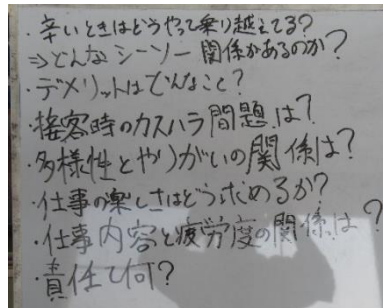 ・辛いときはどうやって乗り越えてる?
⇒どんなシーソー関係があるのか?
・デメリットはどんなこと?
・接客時のカスハラ問題は?
・多様性とやりがいの関係は?
・仕事の楽しさはどう求めるか?
・仕事内容と疲労度の関係は?
・責任て何?